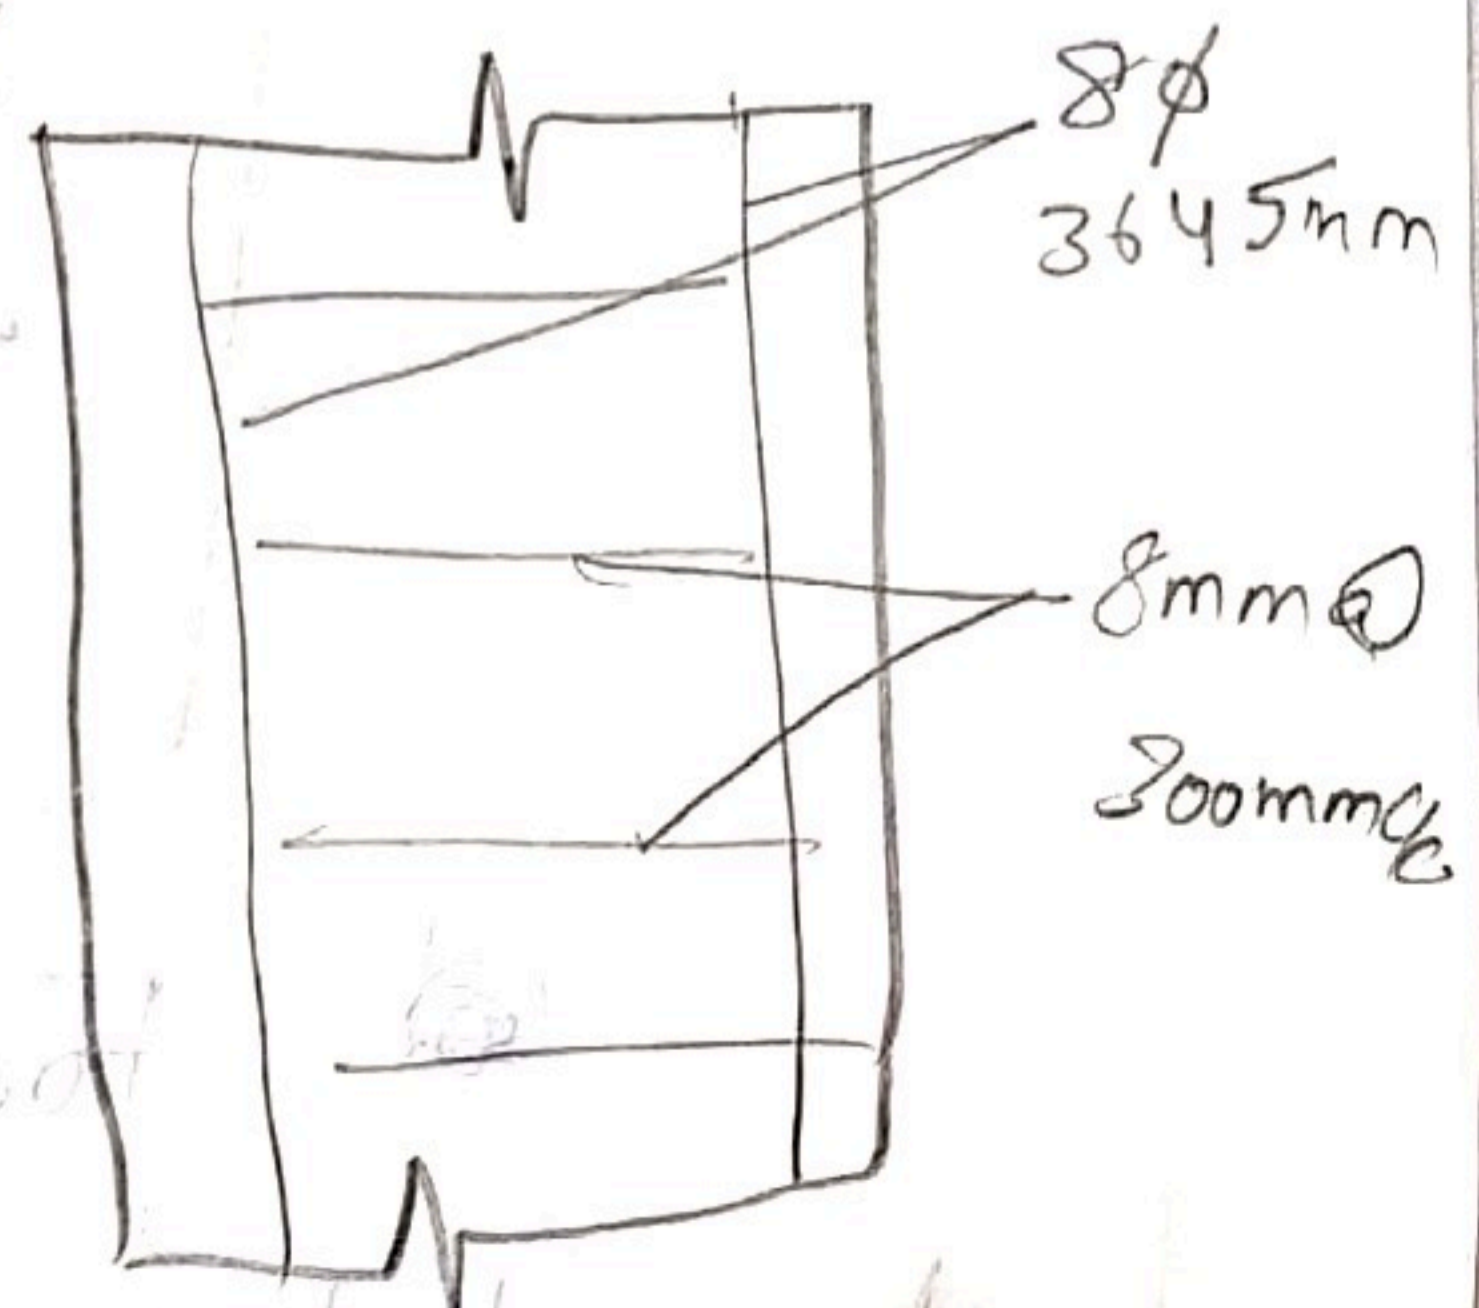 8φ
3645mm
8mm@
300mmc/c